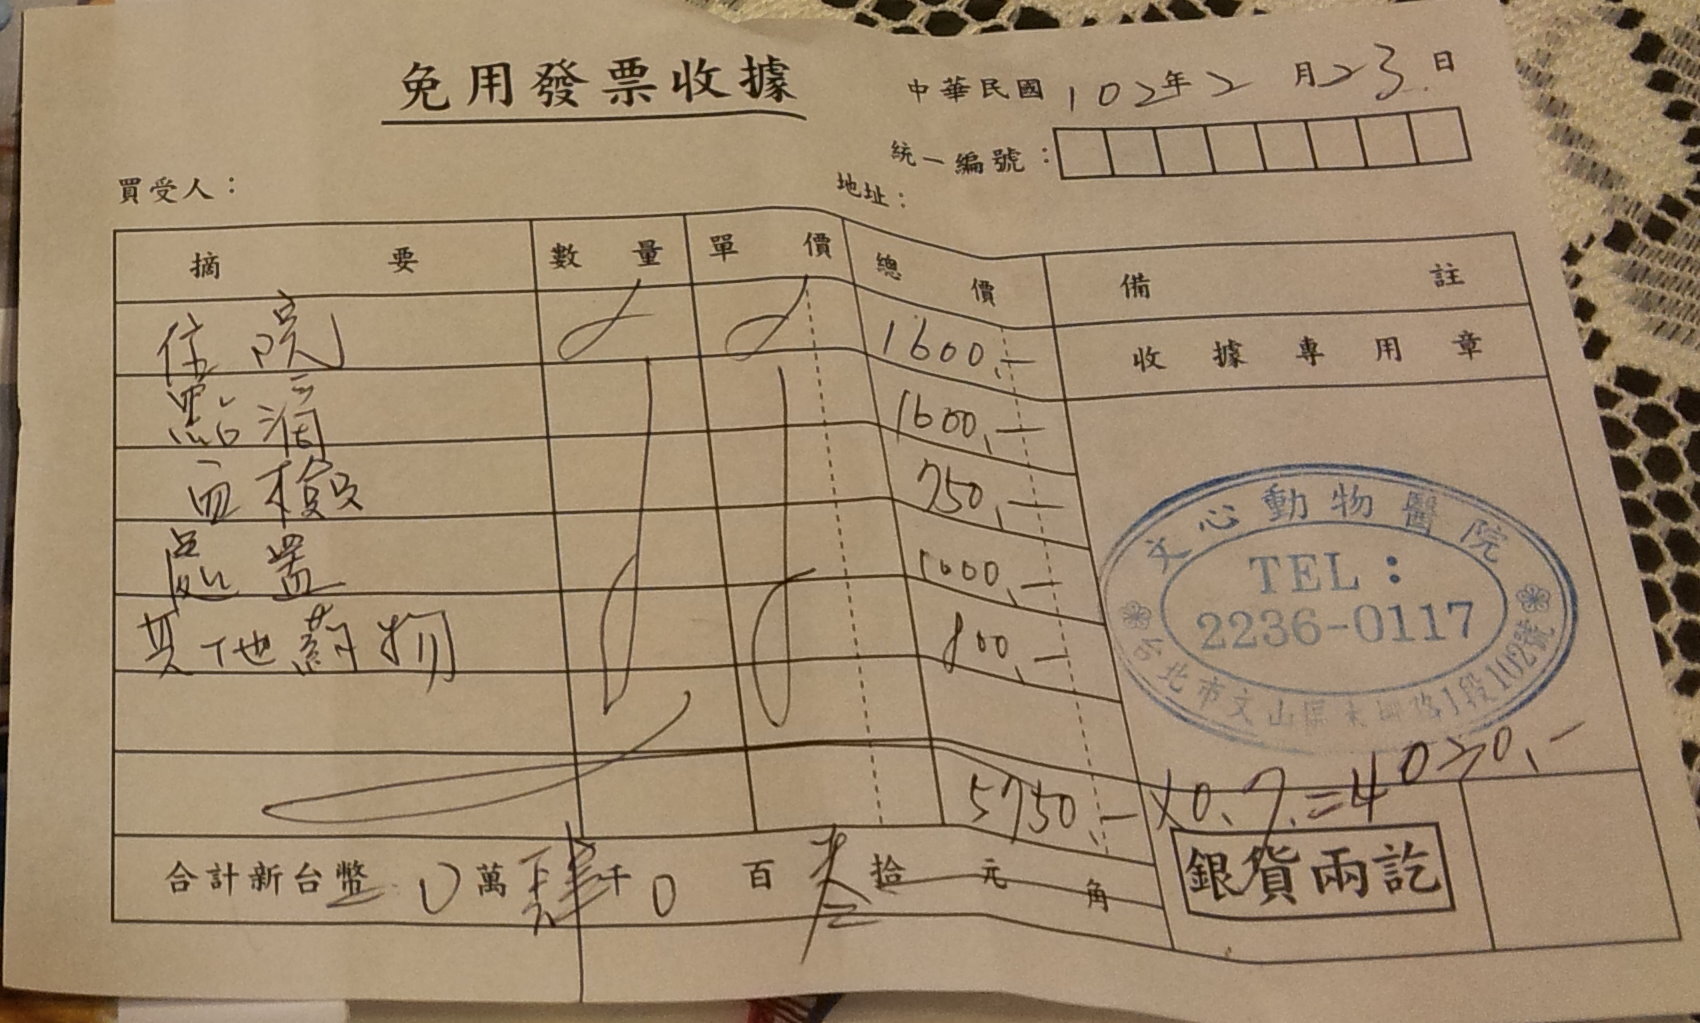 免用發票收據
中華民國 102年2月23日
統一編號：
買受人：
地址：
摘要 數量 單價 總價 備註
收據專用章
住院 1600.—
點滴 1600.—
血檢 750.—
處置 1000.—
其他藥物 800.—
文心動物醫院
TEL：
2236-0117
台北市文山區木新路1段102號
5750.— ×0.7.=4020.—
合計新台幣 0萬肆千0百貳拾元角
銀貨兩訖